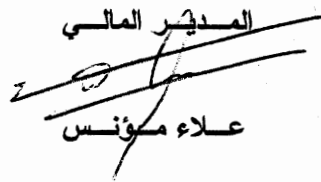 المدير المالي
علاء مؤنس